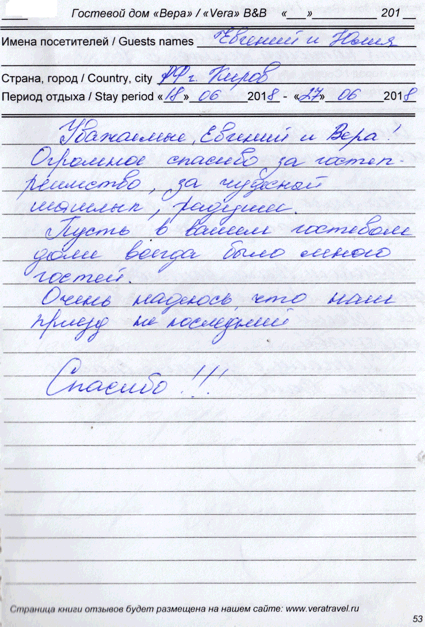 Гостевой дом «Вера» / «Vera» B&B «___»__________ 201__
Имена посетителей / Guests names Евгений и Юлия
Страна, город / Country, city РФ г. Киров
Период отдыха / Stay period «18» 06 2018 - «27» 06 2018
Уважаемые, Евгений и Вера!
Огромное спасибо за гостеп-
реимство, за чудесной
шашлык, радушие.
Пусть в вашем гостевом
доме всегда было много
гостей.
Очень надеюсь, что наш
приезд не последний
Спасибо!!!
Страница книги отзывов будет размещена на нашем сайте: www.veratravel.ru
53